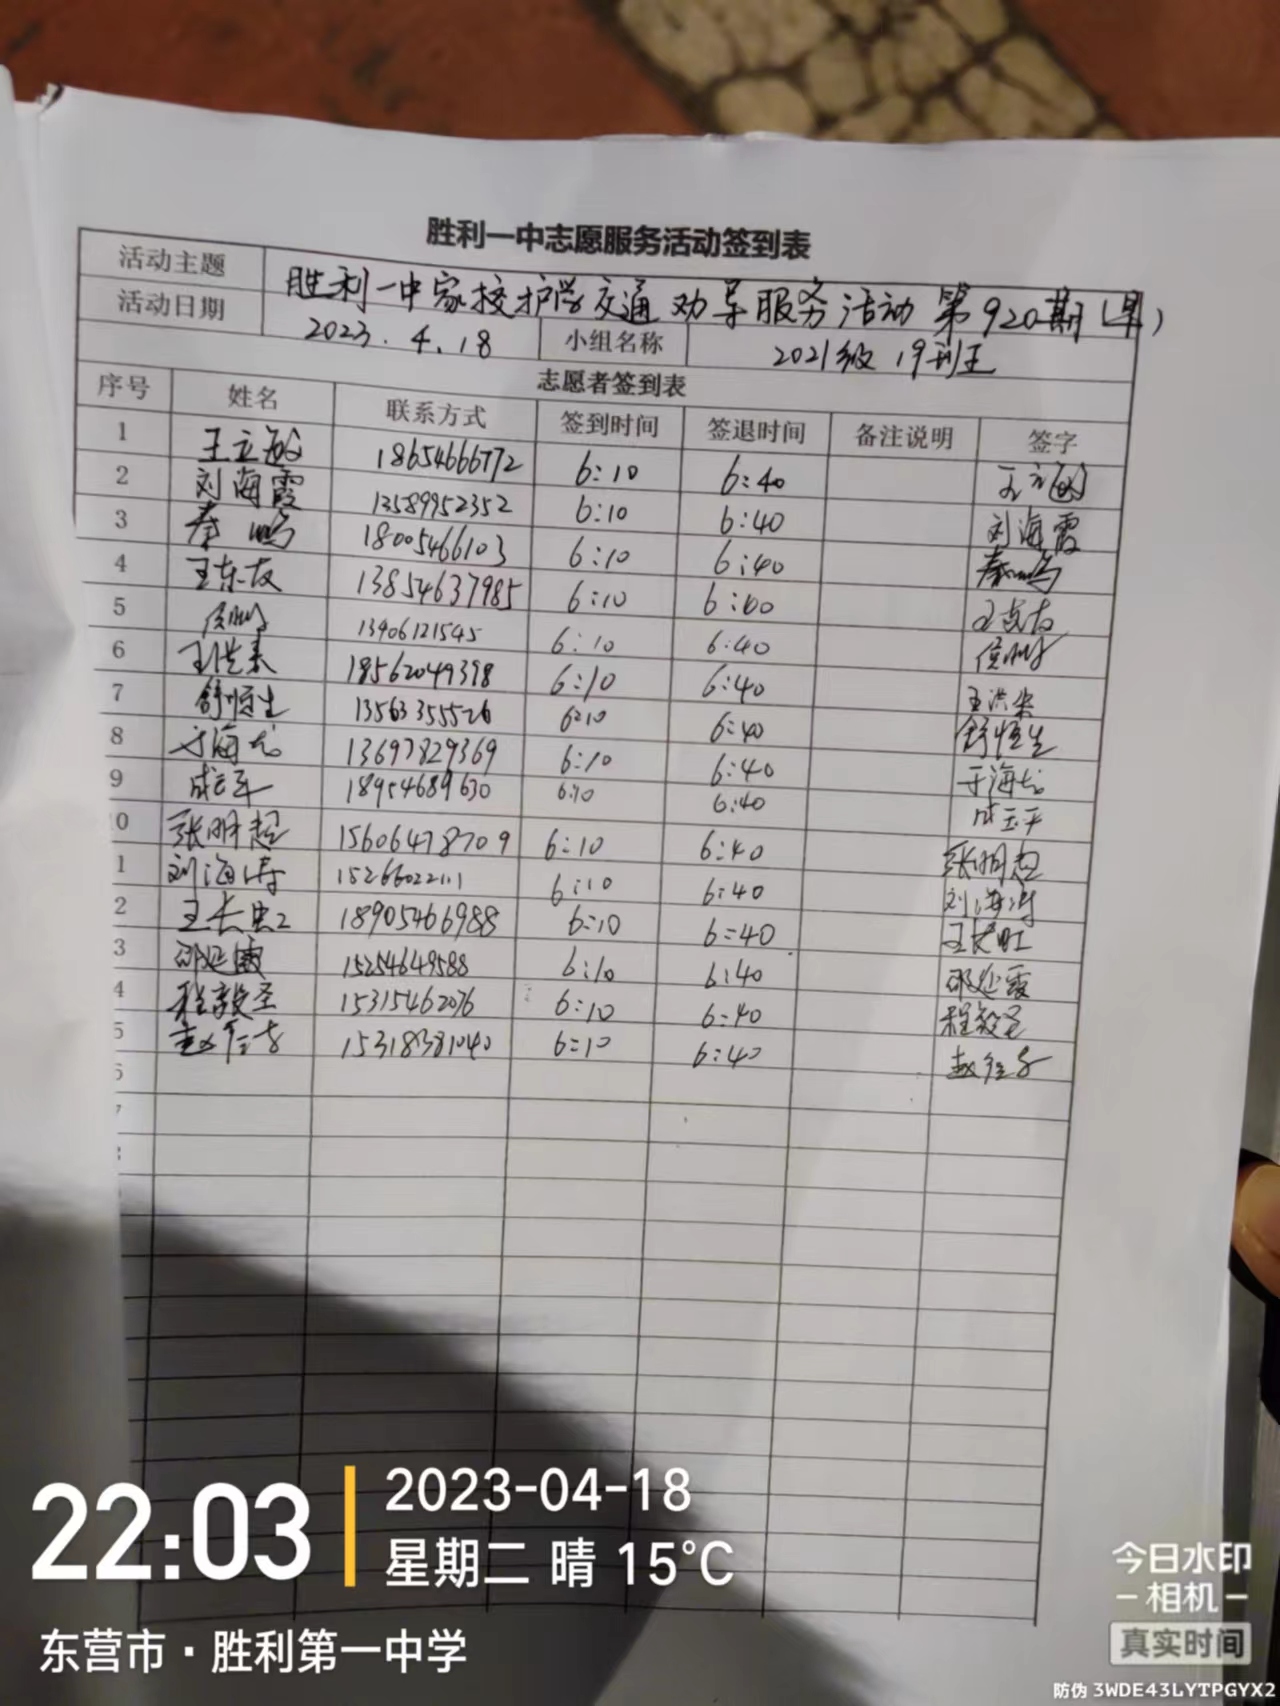 胜利一中志愿服务活动签到表
活动主题 胜利一中家校护学交通劝导服务活动第920期(早)
活动日期 2023.4.18 小组名称 2021级19
志愿者签到表
序号 姓名 联系方式 签到时间 签退时间 备注说明 签字
1 王立敏 18654666772 6:10 6:40 王立敏
2 刘海霞 13589952352 6:10 6:40 刘海霞
3 秦鸣 18005466103 6:10 6:40 秦鸣
4 王东友 13854637985 6:10 6:00
5 13906121545 6:10 6:40
6 18562049398 6:10 6:40
7 舒恒生 13563355526 6:10 6:40 舒恒生
8 于海龙 13697829369 6:10 6:40 于海龙
9 成玉平 18954689630 6:10 6:40 成玉平
0 张明超 15606478709 6:10 6:40 张明超
1 刘海涛 15266022111 6:10 6:40 刘海涛
2 18905466988 6:10 6:40
3 邵延霞 15254649588 6:10 6:40 邵延霞
4 程毅圣 15315462076 6:10 6:40 程毅圣
5 15318381040 6:10 6:40
22:03
2023-04-18
星期二 晴 15°C
东营市·胜利第一中学
今日水印
-相机-
真实时间
防伪 3WDE43LYTPGYX2